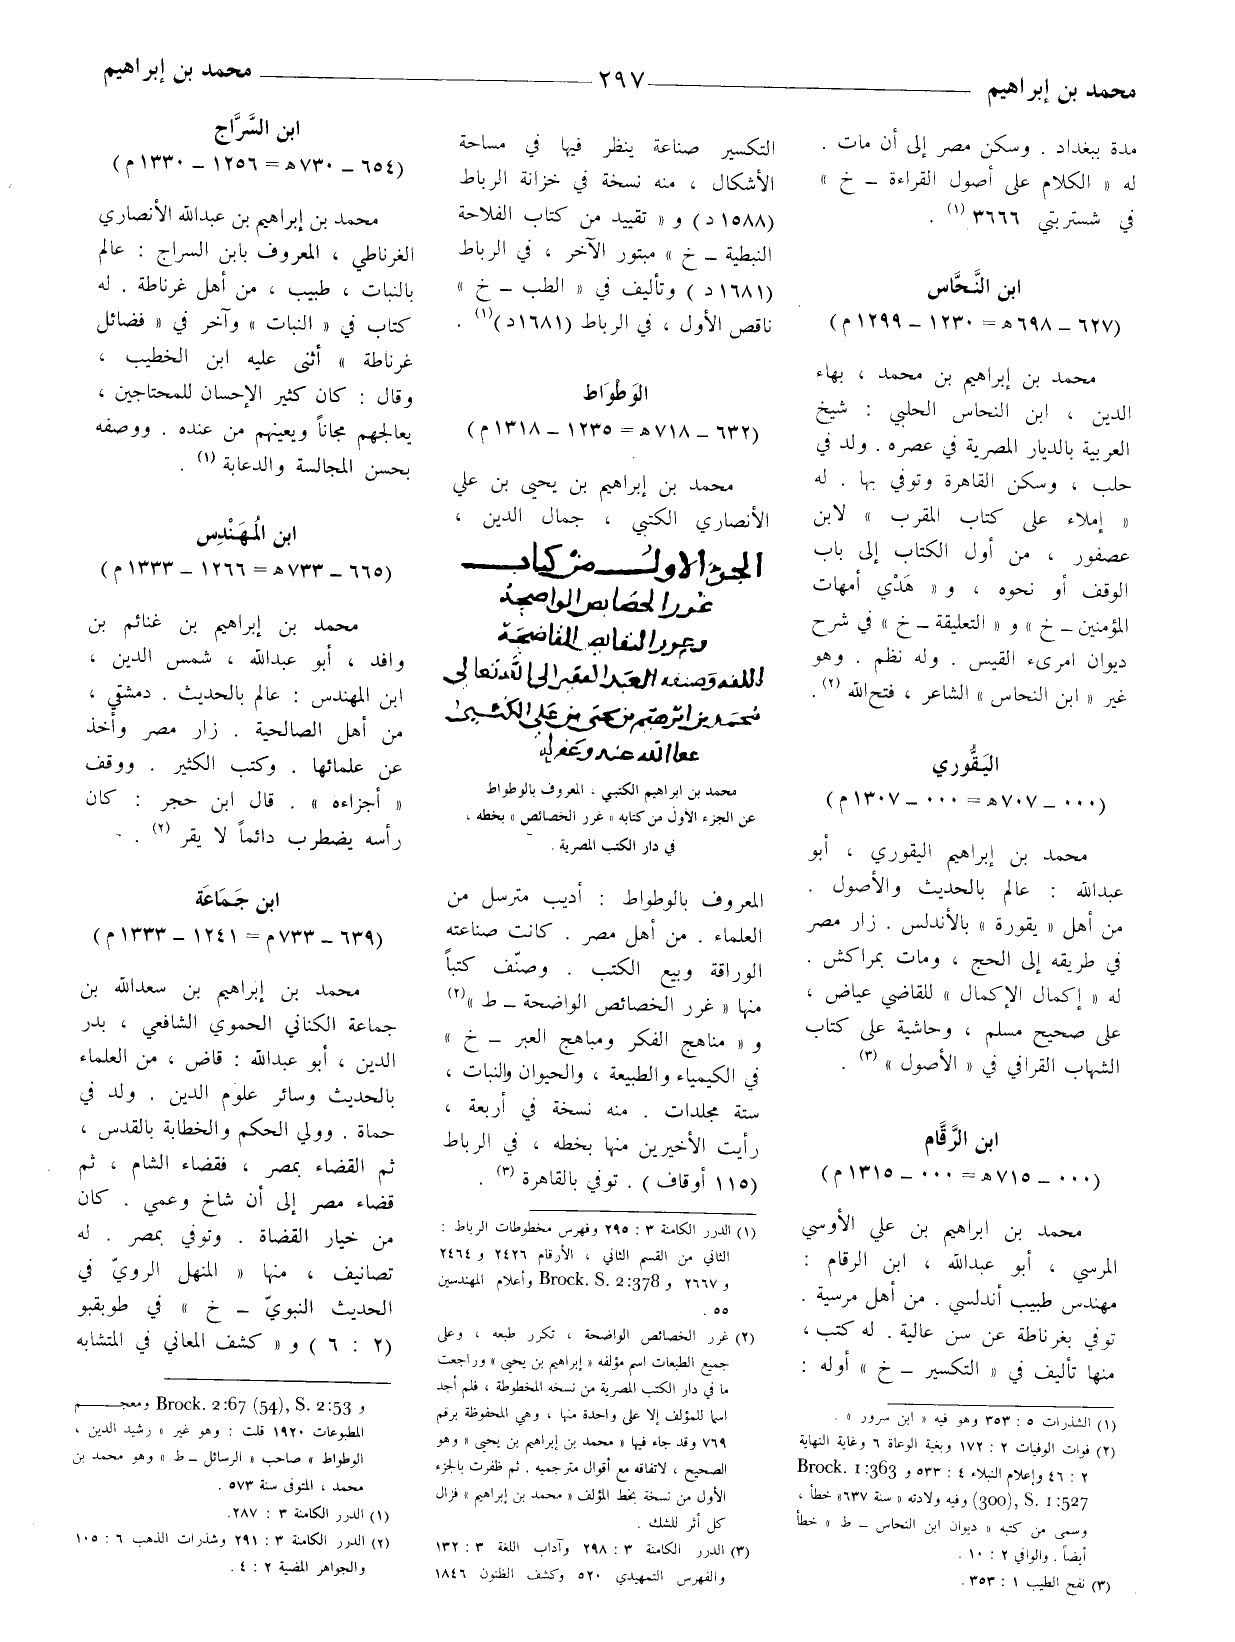 محمد بن إبراهيم
٢٩٧
محمد بن إبراهيم
مدة ببغداد . وسكن مصر إلى أن مات .
له « الكلام على أصول القراءة ــ خ »
في شستربتي ٣٦٦٦ (١) .
ابن النَّحَّاس
(٦٢٧ ــ ٦٩٨ ه‍ = ١٢٣٠ ــ ١٢٩٩ م)
محمد بن إبراهيم بن محمد ، بهاء
الدين ، ابن النحاس الحلبي : شيخ
العربية بالديار المصرية في عصره . ولد في
حلب ، وسكن القاهرة وتوفي بها . له
« إملاء على كتاب المقرب » لابن
عصفور ، من أول الكتاب إلى باب
الوقف أو نحوه ، و « هَدْي أمهات
المؤمنين ــ خ » و « التعليقة ــ خ » في شرح
ديوان امرىء القيس . وله نظم . وهو
غير « ابن النحاس » الشاعر ، فتح الله (٢) .
اليَقُّوري
(٠٠٠ ــ ٧٠٧ ه‍ = ٠٠٠ ــ ١٣٠٧ م)
محمد بن إبراهيم اليقوري ، أبو
عبدالله : عالم بالحديث والأصول .
من أهل « يقورة » بالأندلس . زار مصر
في طريقه إلى الحج ، ومات بمراكش .
له « إكمال الإكمال » للقاضي عياض ،
على صحيح مسلم ، وحاشية على كتاب
الشهاب القرافي في « الأصول » (٣) .
ابن الرَّقَّام
(٠٠٠ ــ ٧١٥ ه‍ = ٠٠٠ ــ ١٣١٥ م)
محمد بن ابراهيم بن علي الأوسي
المرسي ، أبو عبدالله ، ابن الرقام :
مهندس طبيب أندلسي . من أهل مرسية .
توفي بغرناطة عن سن عالية . له كتب ،
منها تأليف في « التكسير ــ خ » أوله :
(١) الشذرات ٥ : ٣٥٣ وهو فيه « ابن سرور » .
(٢) فوات الوفيات ٢ : ١٧٢ وبغية الوعاة ٦ وغاية النهاية
٢ : ٤٦ وإعلام النبلاء ٤ : ٥٣٣ و Brock. 1:363
(300), S. 1:527 وفيه ولادته « سنة ٦٣٧» خطأ ،
وسمى من كتبه « ديوان ابن النحاس ــ ط » خطأ
أيضاً . والوافي ٢ : ١٠ .
(٣) نفح الطيب ١ : ٣٥٣ .
التكسير صناعة ينظر فيها في مساحة
الأشكال ، منه نسخة في خزانة الرباط
(١٥٨٨ د) و « تقييد من كتاب الفلاحة
النبطية ــ خ » مبتور الآخر ، في الرباط
(١٦٨١ د ) وتأليف في « الطب ــ خ »
ناقص الأول ، في الرباط (١٦٨١د)(١) .
الوَطْوَاط
(٦٣٢ ــ ٧١٨ ه‍ = ١٢٣٥ ــ ١٣١٨ م)
محمد بن إبراهيم بن يحيى بن علي
الأنصاري الكتبي ، جمال الدين ،
الجزء الاول من كتاب
غرر الخصايص الواضحة
وعرر النقايص الفاضحة
اللفه وصنفه العبد الفقير الى الله تعالى
محمد بن ابرهيم بن يحيى بن علي الكتبي
عفا الله عنه وغفر له
محمد بن ابراهيم الكتبي ، المعروف بالوطواط
عن الجزء الأول من كتابه « غرر الخصائص » بخطه ،
في دار الكتب المصرية .
المعروف بالوطواط : أديب مترسل من
العلماء . من أهل مصر . كانت صناعته
الوراقة وبيع الكتب . وصنّف كتباً
منها « غرر الخصائص الواضحة ــ ط »(٢)
و « مناهج الفكر ومباهج العبر ــ خ »
في الكيمياء والطبيعة ، والحيوان والنبات ،
ستة مجلدات . منه نسخة في أربعة ،
رأيت الأخيرين منها بخطه ، في الرباط
(١١٥ أوقاف ) . توفي بالقاهرة (٣) .
(١) الدرر الكامنة ٣ : ٢٩٥ وفهرس مخطوطات الرباط :
الثاني من القسم الثاني ، الأرقام ٢٤٢٦ و ٢٤٦٤
و ٢٦٦٧ و Brock. S. 2:378 وأعلام المهندسين
٥٥ .
(٢) غرر الخصائص الواضحة ، تكرر طبعه ، وعلى
جميع الطبعات اسم مؤلفه « إبراهيم بن يحيى » وراجعت
ما في دار الكتب المصرية من نسخه المخطوطة ، فلم أجد
اسما للمؤلف إلا على واحدة منها ، وهي المحفوظة برقم
٧٦٩ وقد جاء فيها « محمد بن إبراهيم بن يحيى » وهو
الصحيح ، لاتفاقه مع أقوال مترجميه . ثم ظفرت بالجزء
الأول من نسخة بخط المؤلف « محمد بن إبراهيم » فزال
كل أثر للشك .
(٣) الدرر الكامنة ٣ : ٢٩٨ وآداب اللغة ٣ : ١٣٢
والفهرس التمهيدي ٥٢٠ وكشف الظنون ١٨٤٦
ابن السَّرَّاج
(٦٥٤ ــ ٧٣٠ ه‍ = ١٢٥٦ ــ ١٣٣٠ م)
محمد بن إبراهيم بن عبدالله الأنصاري
الغرناطي ، المعروف بابن السراج : عالم
بالنبات ، طبيب ، من أهل غرناطة . له
كتاب في « النبات » وآخر في « فضائل
غرناطة » أثنى عليه ابن الخطيب ،
وقال : كان كثير الإحسان للمحتاجين ،
يعالجهم مجاناً ويعينهم من عنده . ووصفه
بحسن المجالسة والدعابة (١) .
ابن المُهَنْدِس
(٦٦٥ ــ ٧٣٣ ه‍ = ١٢٦٦ ــ ١٣٣٣ م)
محمد بن إبراهيم بن غنائم بن
وافد ، أبو عبدالله ، شمس الدين ،
ابن المهندس : عالم بالحديث . دمشقي ،
من أهل الصالحية . زار مصر وأخذ
عن علمائها . وكتب الكثير . ووقف
« أجزاءه » . قال ابن حجر : كان
رأسه يضطرب دائماً لا يقر (٢) .
ابن جَمَاعَة
(٦٣٩ ــ ٧٣٣ م = ١٢٤١ ــ ١٣٣٣ م)
محمد بن إبراهيم بن سعدالله بن
جماعة الكناني الحموي الشافعي ، بدر
الدين ، أبو عبدالله : قاض ، من العلماء
بالحديث وسائر علوم الدين . ولد في
حماة . وولي الحكم والخطابة بالقدس ،
ثم القضاء بمصر ، فقضاء الشام ، ثم
قضاء مصر إلى أن شاخ وعمي . كان
من خيار القضاة . وتوفي بمصر . له
تصانيف ، منها « المنهل الرويّ في
الحديث النبويّ ــ خ » في طوبقبو
(٢ : ٦ ) و « كشف المعاني في المتشابه
و Brock. 2:67 (54), S. 2:53 ومعجم
المطبوعات ١٩٢٠ قلت : وهو غير « رشيد الدين ،
الوطواط » صاحب « الرسائل ــ ط » وهو محمد بن
محمد ، المتوفى سنة ٥٧٣ .
(١) الدرر الكامنة ٣ : ٢٨٧.
(٢) الدرر الكامنة ٣ : ٢٩١ وشذرات الذهب ٦ : ١٠٥
والجواهر المضية ٢ : ٤ .